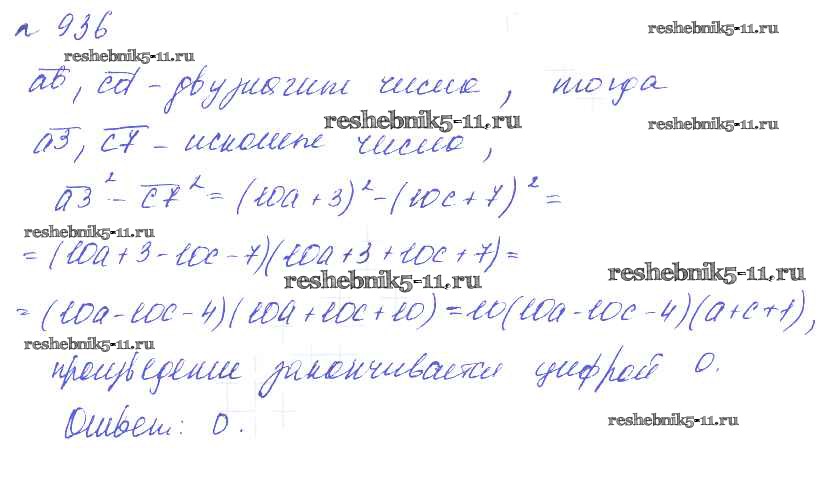 n 936
reshebnik5-11.ru
reshebnik5-11.ru
ab, cd - двузначные числа, тогда
reshebnik5-11.ru
reshebnik5-11.ru
a3, c7 - искомые числа,
a3² - c7² = (10a + 3)² - (10c + 7)² =
reshebnik5-11.ru
= (10a + 3 - 10c - 7)(10a + 3 + 10c + 7) =
reshebnik5-11.ru
reshebnik5-11.ru
= (10a - 10c - 4)(10a + 10c + 10) = 10(10a - 10c - 4)(a + c + 1),
reshebnik5-11.ru
произведение заканчивается цифрой 0.
Ответ: 0.
reshebnik5-11.ru